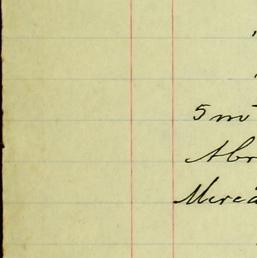 5 m
Abr
Merca